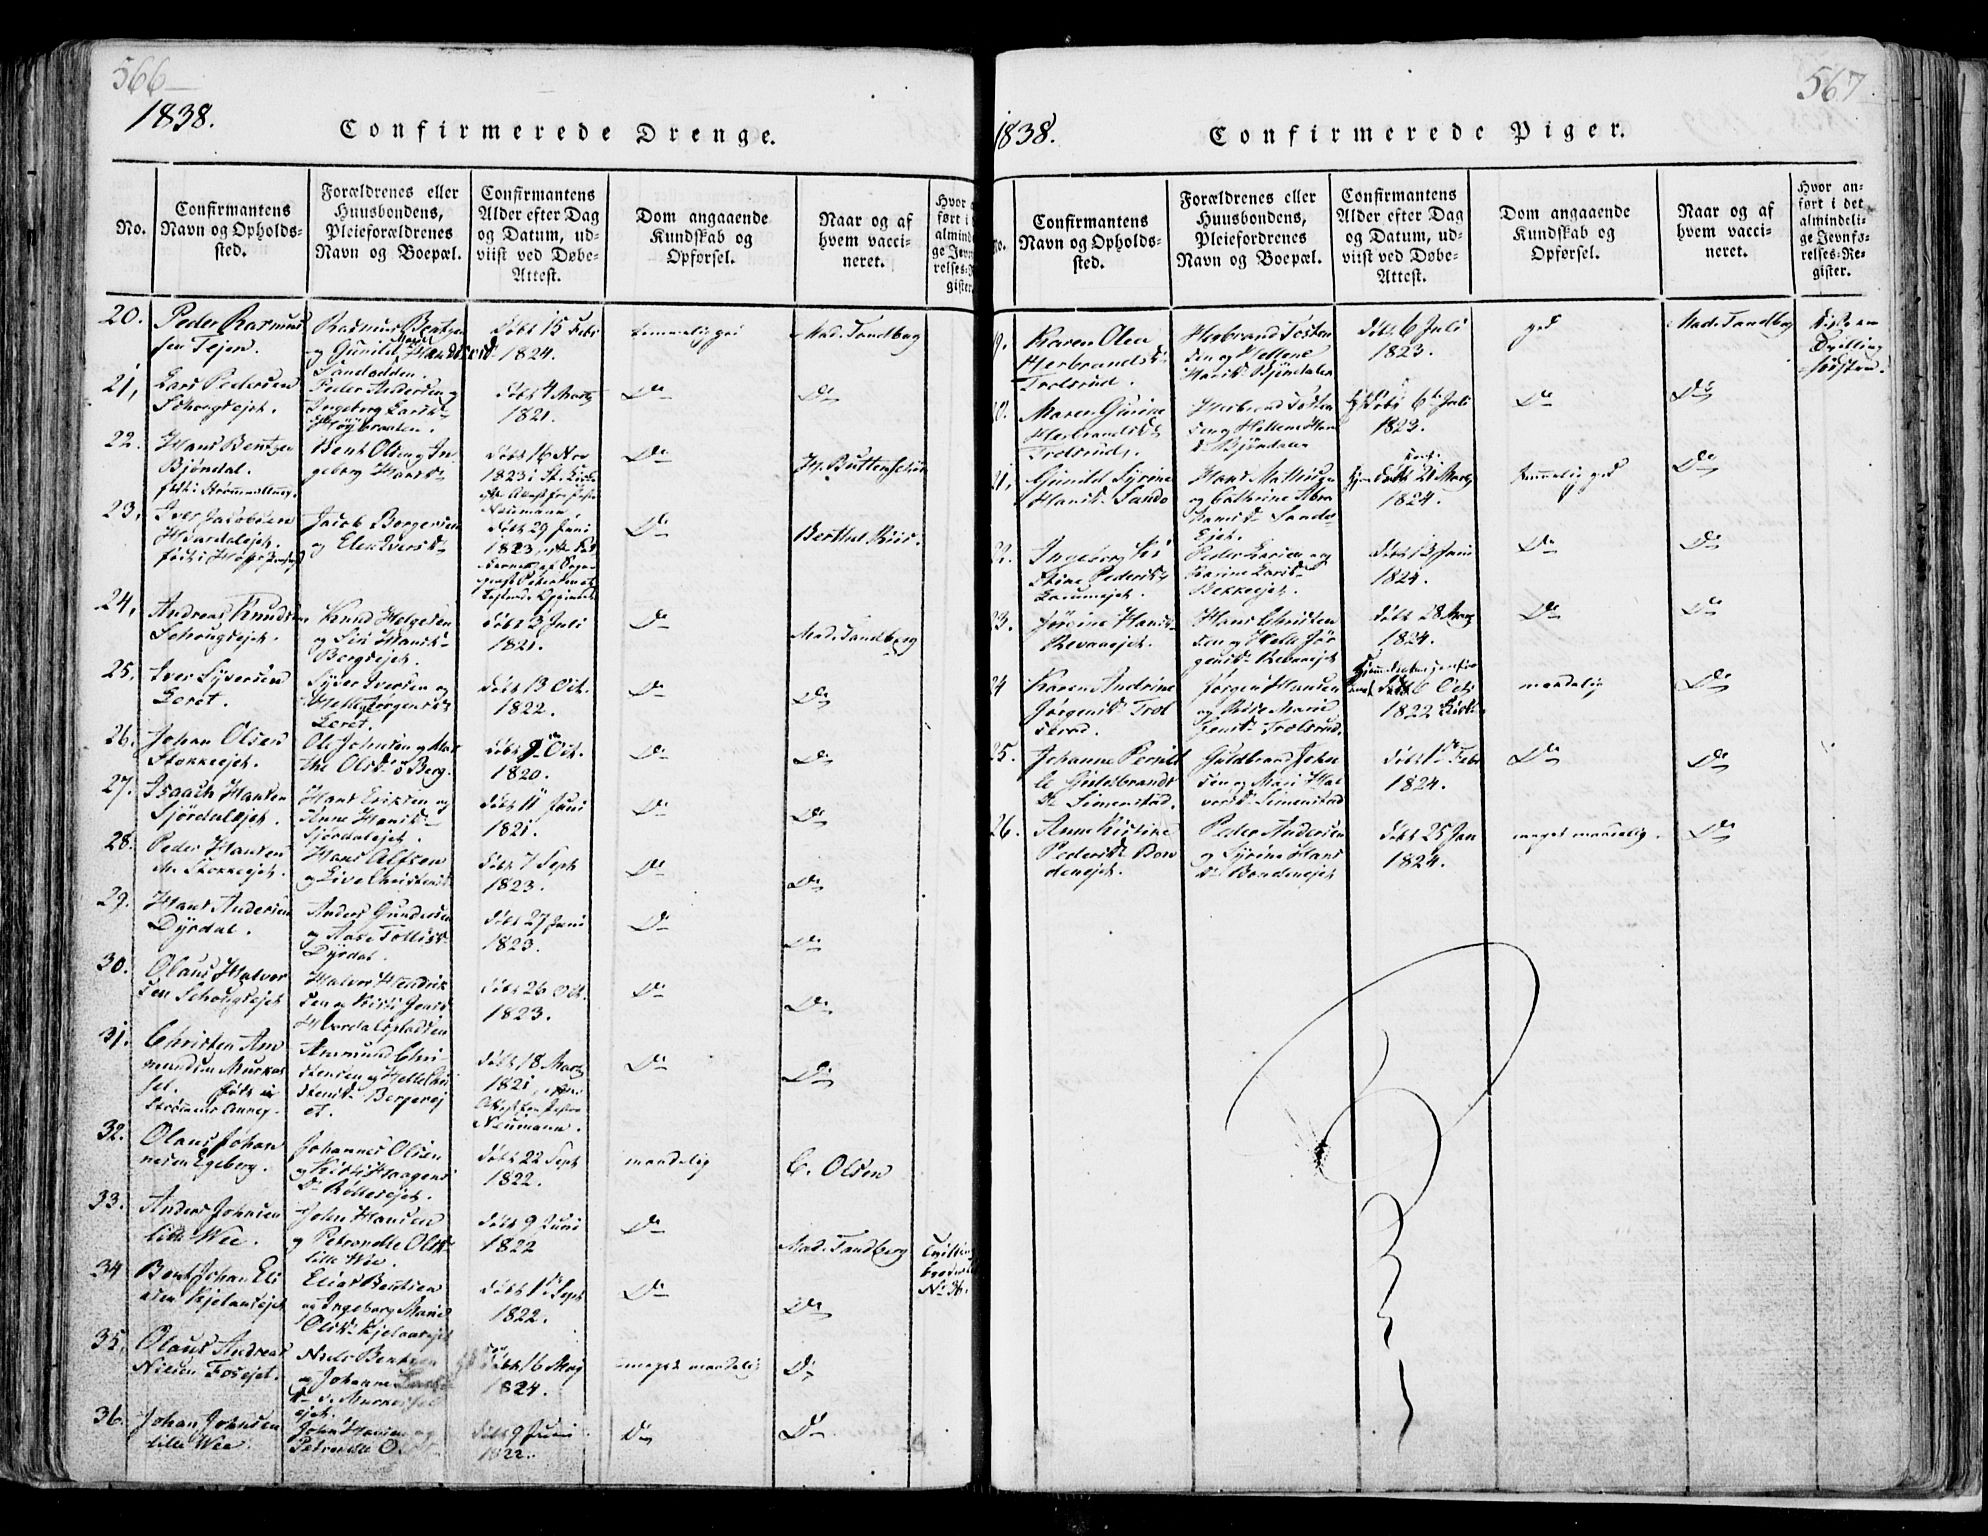 566
1838.
Confirmerede Drenge.
No.
Confirmantens
Navn og Opholds-
sted.
Forældrenes eller
Huusbondens,
Pleieforældrenes
Navn og Boepæl.
Confirmantens
Alder efter Dag
og Datum, ud-
viist ved Døbe-
Attest.
Dom angaaende
Kundskab og
Opførsel.
Naar og af
hvem vacci-
neret.
Hvor
ført i
almind
ge Jevn
relses-
gister
20.
Peder Rasmus
sen Tejen.
Rasmus Bentzen
og Gunild
døbt 15 Febr
1824.
temmelig god
Mad. Tandberg
21,
Lars Pedersen
Schougsejet.
Peder Andersen og
Ingeborg Larsd
Højbraaten.
døbt 4 Martz
1821.
Do
Do
22.
Hans Bentzen
Bjøndal.
Bent Olsen og In
geborg Hansd
døbt 16 Nov
1823 i
Neumann
Do
H. Buttenschøn
23,
Iver Jacobsen
Jacob Borgersen
og Elen Iversd
døbt 29 Juni
1823,
Do
Berthel Riis.
24,
Andreas Knudsen
Schougsejet.
Knud Helgesen
og Siri Hansd
Bergsejet.
døbt 3 Juli
1821.
Do
Mad. Tandberg
25.
Iver Syversen
Leret.
Syver Iversen og
Helle Jørgensd
Leret.
døbt 13 Oct.
1822.
Do
Do
26.
Johan Olsen
Stokkeejet.
Ole Johnsen og Mar
the Olsd. Berg.
Oct.
1820.
Do
Do
27.
Isaach Hansen
Sjørdalsejet.
Hans Eriksen og
Anne Hansd
Sjørdalsejet.
døbt 11 Juni
1821.
Do
Do
28.
Peder Hansen
Stokkeejet.
Hans Alfsen
og Live Christensd
døbt 7 Sept
1823.
Do
Do
29.
Hans Andersen
Dyrdal.
Anders Gundersen
og Aase Tollefsd
Dyrdal.
døbt 27 Juni
1823.
Do
Do
30.
Olaus Halvor
sen Schougsejet
Halvor Hendrik
sen og Kirsti Jensd
døbt 26 Oct.
1823.
Do
Do
31.
Christen Am
mundsen
Ammund Chri
stensen og Helle Chri
stensd Bergsej
et.
døbt 18 Martz
1821,
Neumann.
Do
Do
32.
Olaus Johan
nesen Egeberg.
Johannes Olsen
døbt 22 Sept
1822.
maadelig
C. Olsen
33.
Anders Johnsen
lille Wee.
John Hansen
og Petronelle Olsd
lille Wee.
døbt 9 Juni
1822
Do
Mad. Tandberg
Tvilling
broder
No 36.
34
Bent Johan Eli
asen
Elias Bentsen
og Ingeborg Marie
Olsd
døbt 1 Sept
1822.
Do
Do
35.
Olaus Andreas
Nilsen Fosejet.
Niels Bentzen
og Johanne
døbt 16 May
1824.
meget maadelig
Do
36.
Johan Johnsen
lille Wee.
John Hansen og
Petronelle Olsd
døbt 9 Juni
1822.
Do
Do
567
1838.
Confirmerede Piger.
No.
Confirmantens
Navn og Opholds-
sted.
Forældrenes eller
Huusbondens,
Pleiefordrenes
Navn og Boepæl.
Confirmantens
Alder efter Dag
og Datum, ud-
viist ved Døbe-
Attest.
Dom angaaende
Kundskab og
Opførsel.
Naar og af
hvem vacci-
neret.
Hvor an-
ført i det
almindeli-
ge Jevnfø-
relses-Re-
gister.
9.
Karen Olea
Herbrandsd
Trolsrud.
Herbrand Tosten
sen og Hellene
Hansd. Bjøndalen
døbt 6 Juli
1823.
god
Mad. Tandberg
Tvilling
søstre.
20.
Maren Gurine
Herbrandsd
Trolsrud.
Herbrand Tosten
sen og Hellene Han
sd Bjøndalen
døbt 6 Juli
1823.
Do
Do
21,
Gunild Syrine
Hansd. Sando
Hans Mathisen
og Cathrine Abra
hamsd Sando
Ejet.
21 Martz
1824.
temmelig god
Do
22.
Ingeborg Kri
stine Pedersd
Peder Larsen og
Karine Larsd
Bekkeejet.
døbt 13 Juni
1824.
Do
Do
23.
Jørine Hansd
Revaaejet.
Hans Christen
sen og Helle Jør
gensd Revaaejet
døbt 28 Martz
1824.
Do
Do
24
Karen Andrine
Jørgensd Trol
srud.
Jørgen Hansen
og Marie
Jensd Trolsrud.
døbt 6 Oct
1822
maadelig
Do
25.
Johanne Pernil
le Guldbrands
d. Simenstad.
Guldbrand John
sen og Mari Hal
vorsd. Simenstad
døbt 1 Febr
1824.
Do
Do
26.
Anne Kirstine
Pedersd Bon
denejet.
Peder Andersen
og Syrine Hans
d. Bondenejet
døbt 25 Jan
1824.
meget maadelig.
Do